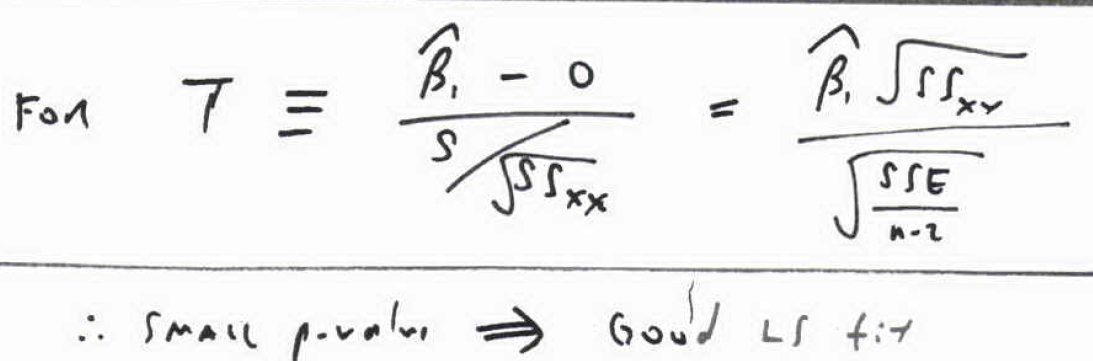 For T ≡ (β̂₁ - 0) / (S / √SSxx) = (β̂₁ √SSxx) / √(SSE / (n-2))
∴ Small p-value ⇒ Good LS fit